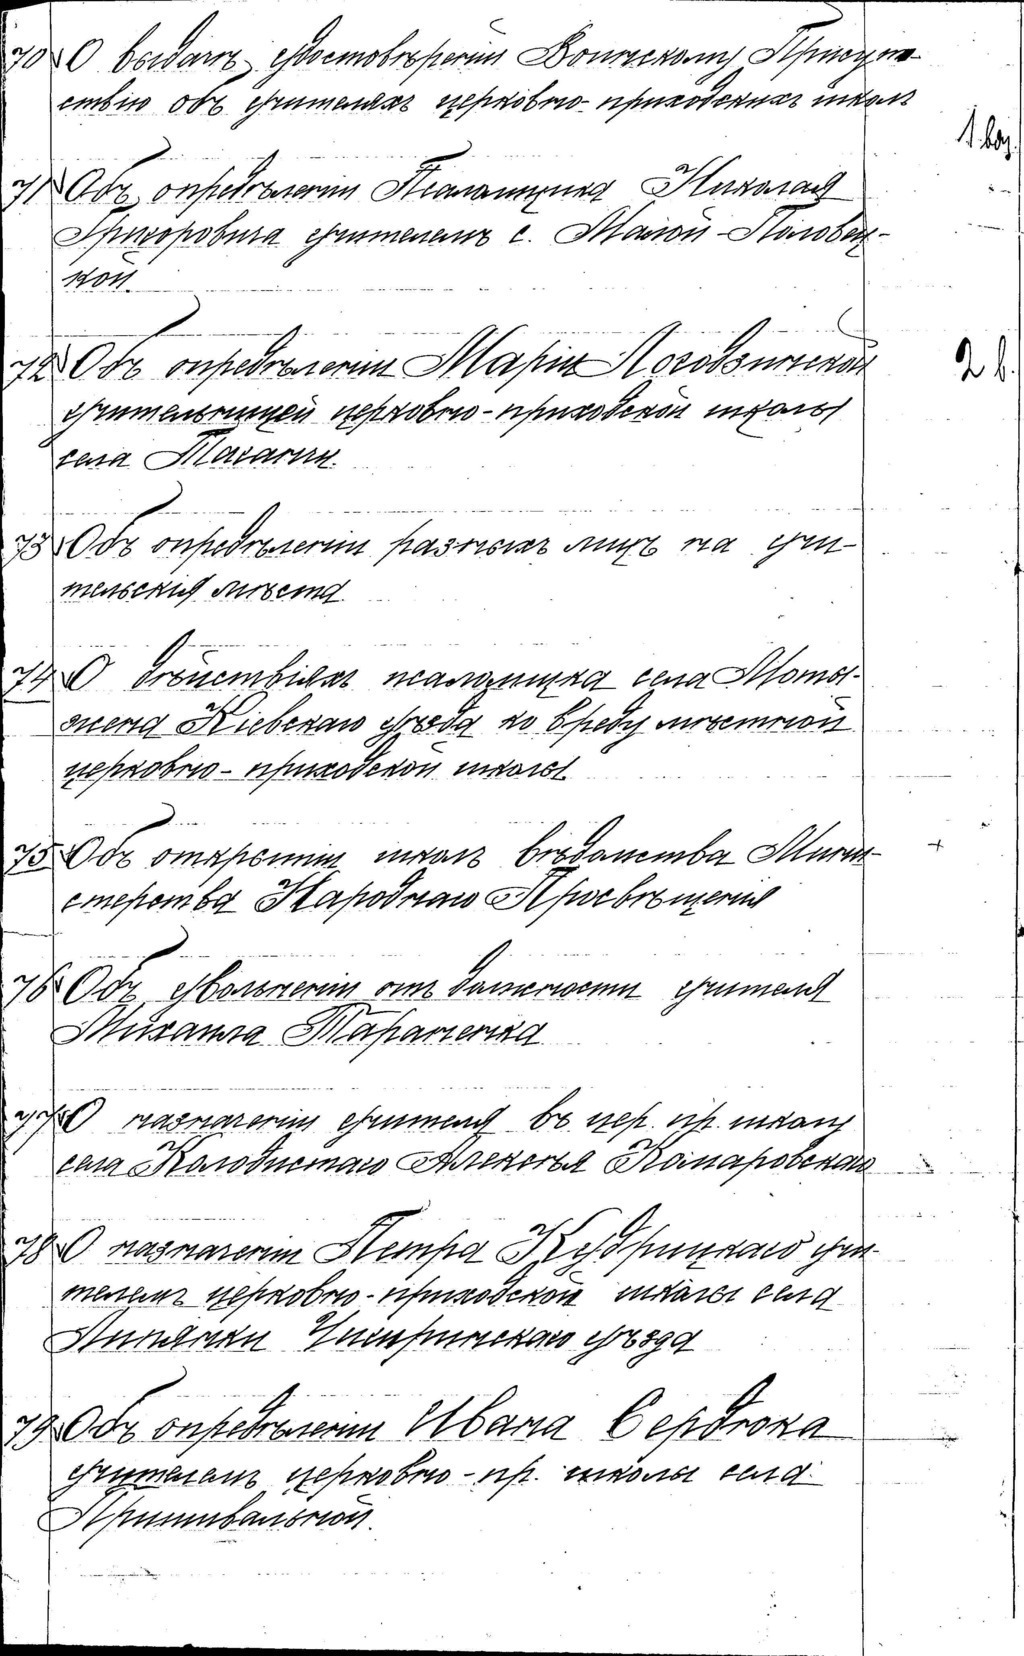 70 О выдачѣ удостовѣренія Воинскому Присут-
ствію объ учителяхъ церковно-приходскихъ школъ
71 Объ опредѣленіи Псаломщика Николая
Григоровича учителемъ с. Малой-Половец-
кой.
72 Объ опредѣленіи Маріи Логовзинской
учительницей церковно-приходской школы
села Таганчи.
73 Объ опредѣленіи разныхъ лицъ на учи-
тельскія мѣста
74 О дѣйствіяхъ псаломщика села Моты-
жена Кіевскаго уѣзда ко вреду мѣстной
церковно-приходской школы
75 Объ открытіи школъ вѣдомства Мини-
стерства Народнаго Просвѣщенія
76 Объ увольненіи отъ должности учителя
Михаила Тараненка
77 О назначеніи учителя въ цер. пр. школу
села Колодистаго Алексѣя Комаровскаго
78 О назначеніи Петра Кудрицкаго учи-
телемъ церковно-приходской школы села
Липянки Чигиринскаго уѣзда
79 Объ опредѣленіи Ивана Сердюка
учителемъ церковно-пр. школы села
Пришивальной.
2 в.